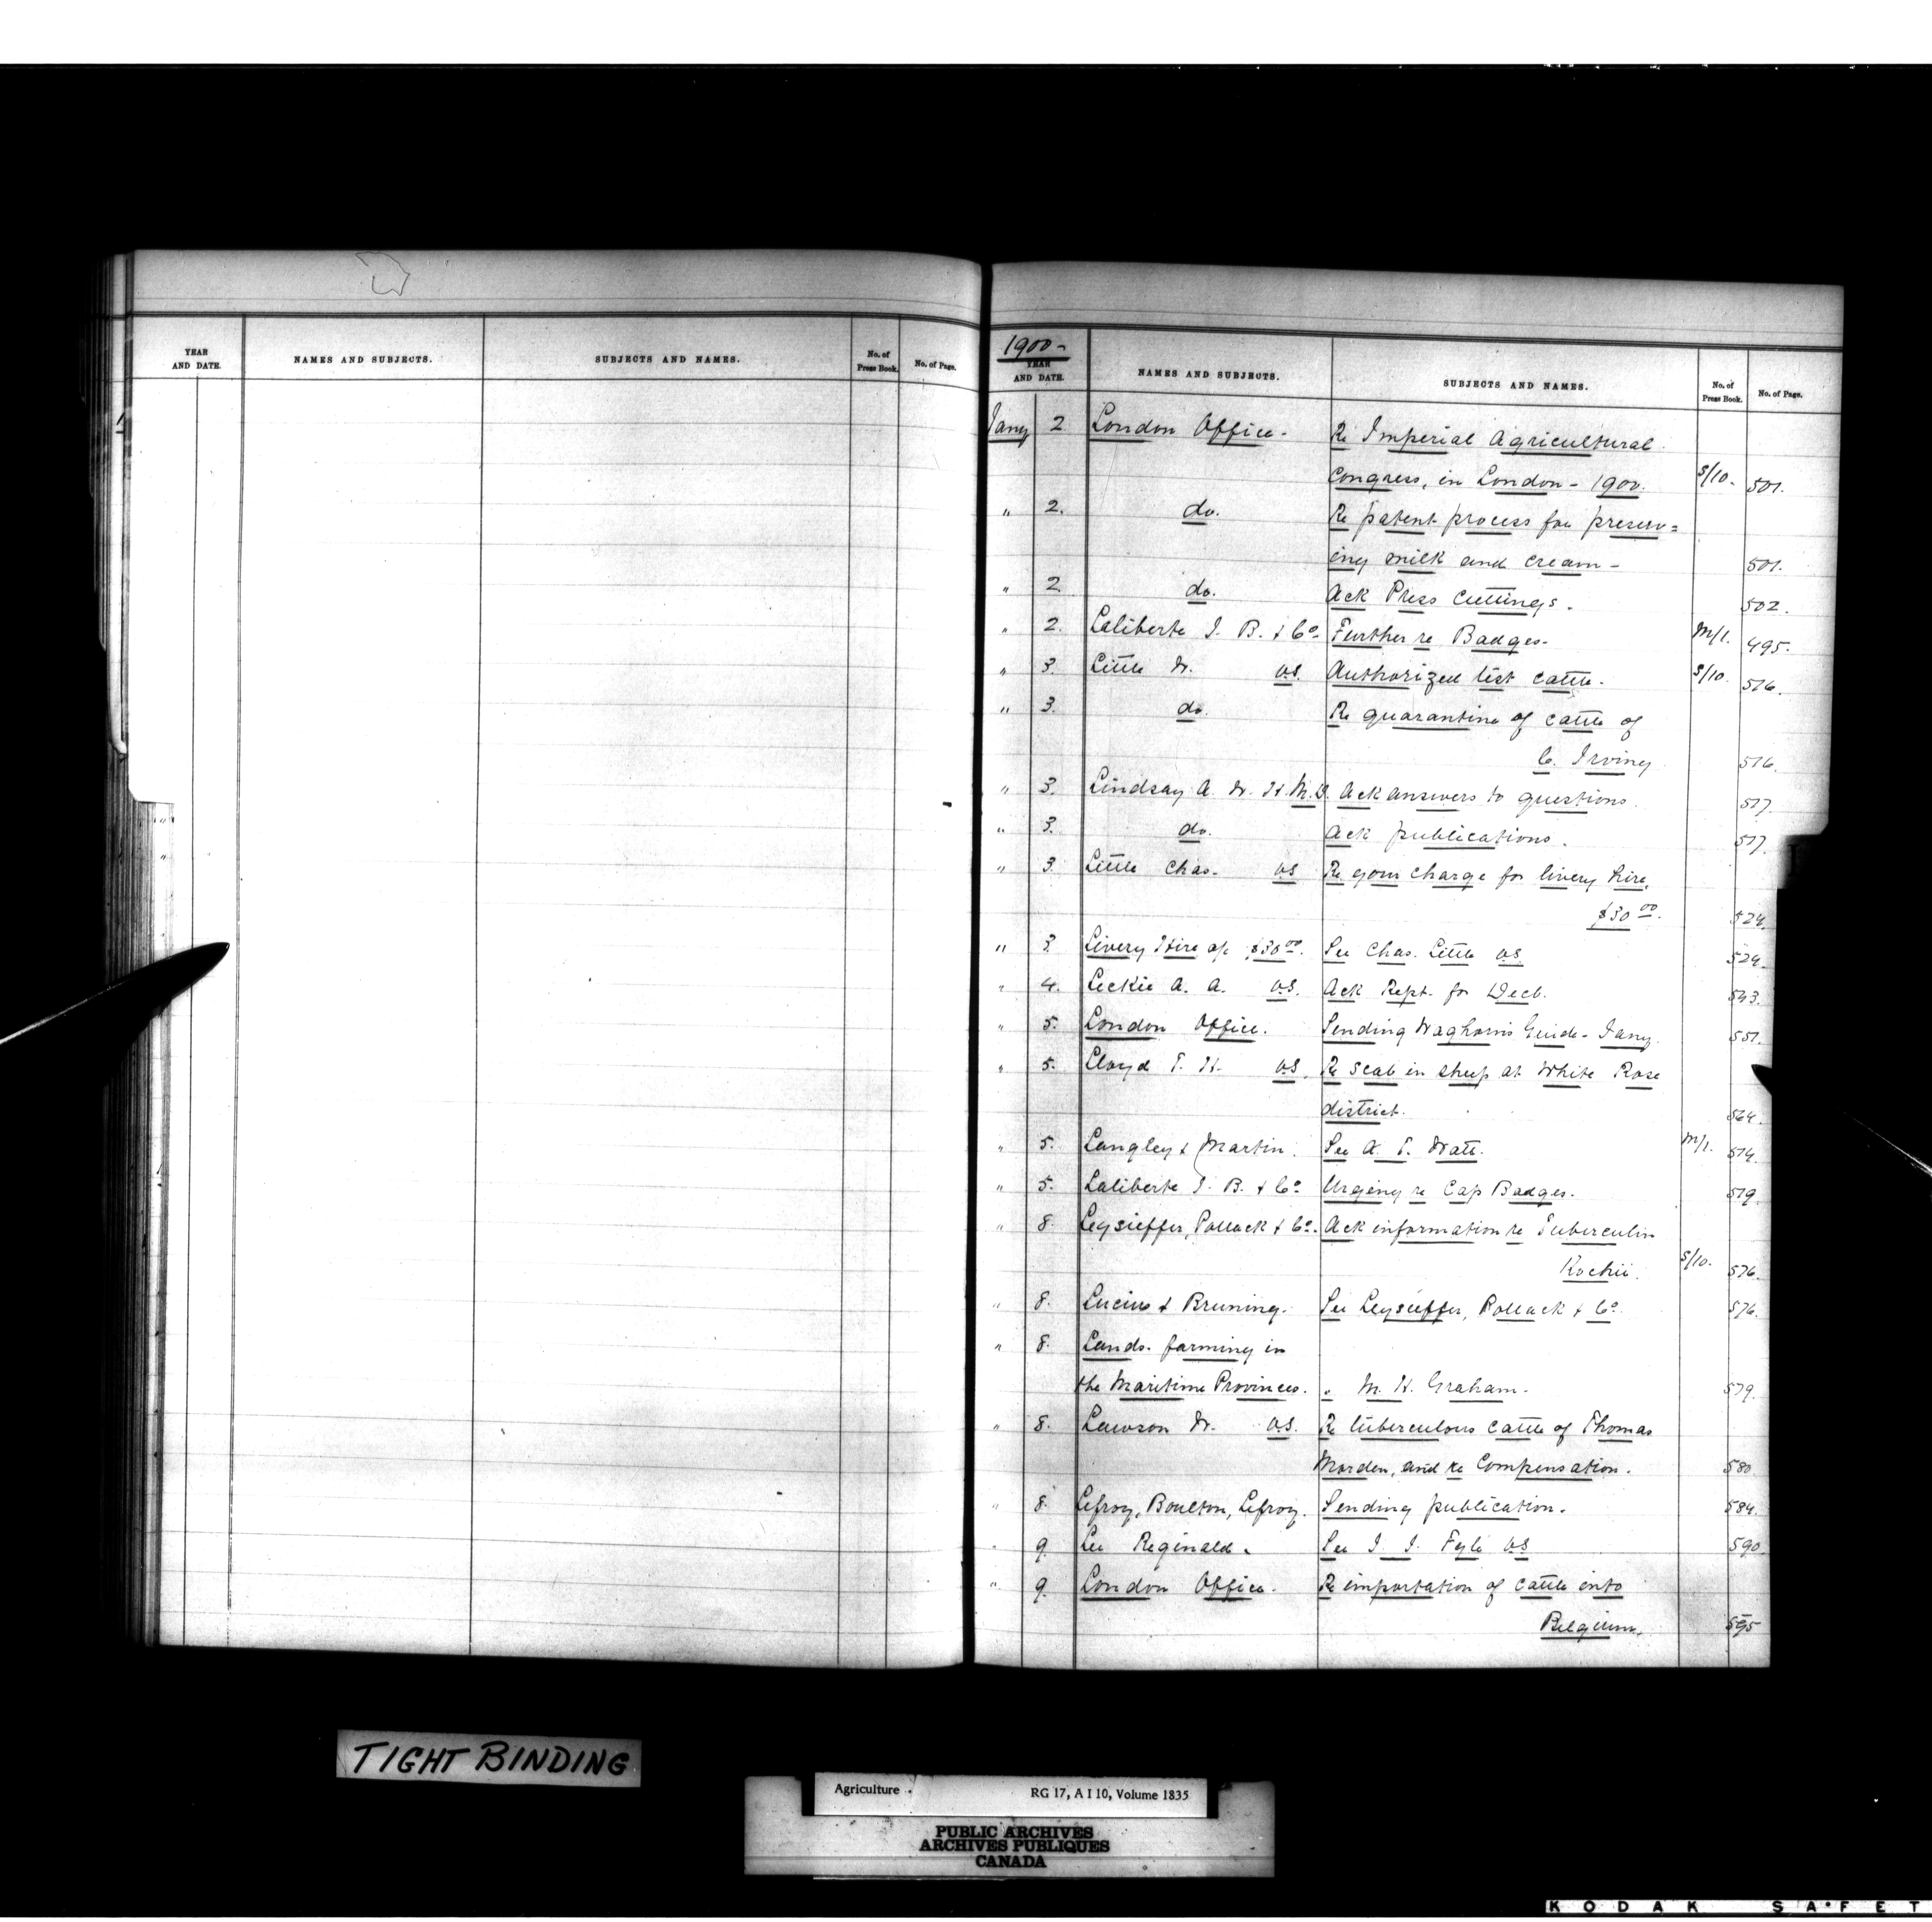 YEAR AND DATE. NAMES AND SUBJECTS. SUBJECTS AND NAMES. No. of Press Book. No. of Page.
1900-
YEAR AND DATE. NAMES AND SUBJECTS. SUBJECTS AND NAMES. No. of Press Book. No. of Page.
Jany 2 London Office - Re Imperial Agricultural
Congress, in London - 1900. S/10. 501.
" 2. do. Re patent process for preserv=
ing milk and cream - 501.
" 2 do. Ack Press Cuttings. 502.
" 2. Laliberte J. B. & Co. Further re Badges. M/1. 495.
" 3. Little W. V.S. Authorized test cattle. S/10. 516.
" 3. do. Re quarantine of cattle of
C. Irving 516.
" 3. Lindsay A. W. H. M.D. Ack answers to questions. 517.
" 3. do. Ack publications. 517.
" 3. Little Chas. V.S. Re your charge for livery hire,
$30 00. 524.
" 3. Livery Hire a/c $30 00. See Chas. Little V.S. 524.
" 4. Leckie A. A. V.S. Ack Rept. for Decb. 543.
" 5. London Office. Sending Waghorn's Guide - Jany. 551.
" 5. Lloyd T. H. V.S. Re scab in sheep at White Rose
district. 564.
" 5. Langley & Martin. See A. T. Watt. M/1. 514.
" 5. Laliberte J. B. & Co. Urging re Cap Badges. 519.
" 8. Leysieffer, Pollack & Co. Ack information re Tuberculin
Kochii. S/10. 576.
" 8. Lucius & Bruning. See Leysieffer, Pollack & Co. 576.
" 8. Lands. farming in
the Maritime Provinces. " M. H. Graham. 579.
" 8. Lawson W. V.S. Re tuberculous cattle of Thomas
Morden, and re Compensation. 580
" 8. Lefroy, Boulton, Lefroy. Sending publication. 584.
" 9. Lee Reginald. See J. J. Fyle V.S. 590.
" 9. London Office. Re importation of cattle into
Belgium. 595
TIGHT BINDING
Agriculture RG 17, A I 10, Volume 1835
PUBLIC ARCHIVES
ARCHIVES PUBLIQUES
CANADA
KODAK SAFET